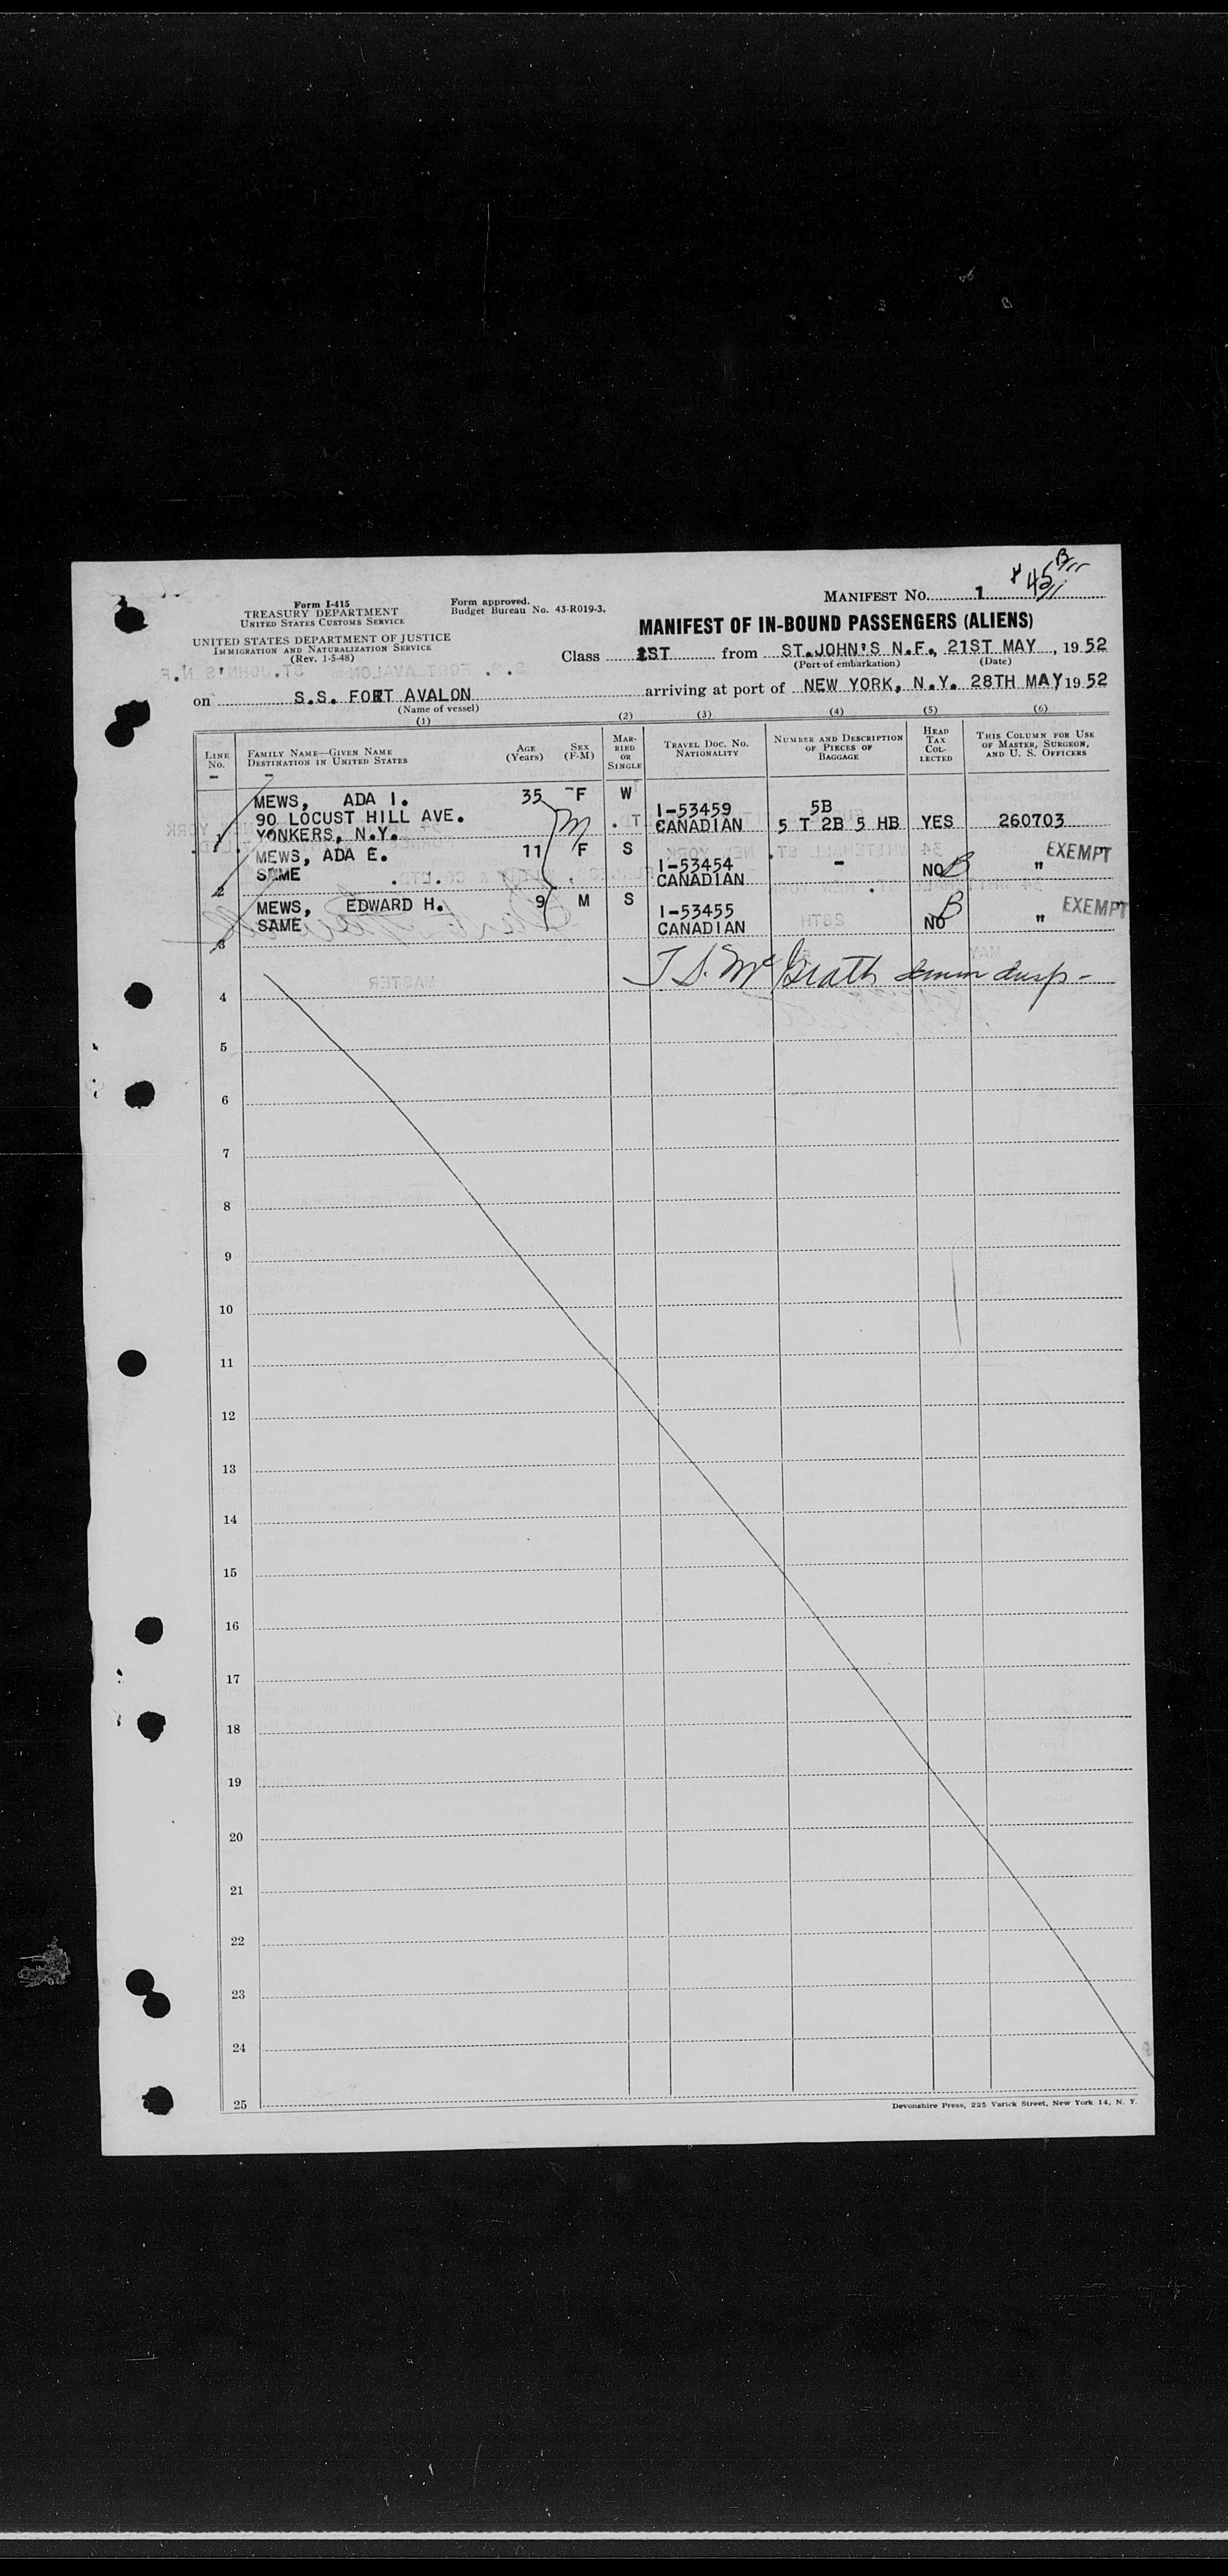 Form I-415
TREASURY DEPARTMENT
UNITED STATES CUSTOMS SERVICE
UNITED STATES DEPARTMENT OF JUSTICE
IMMIGRATION AND NATURALIZATION SERVICE
(Rev. 1-5-48)
Form approved.
Budget Bureau No. 43-R019-3.
MANIFEST No. 1
MANIFEST OF IN-BOUND PASSENGERS (ALIENS)
Class 1ST from ST.JOHN'S N.F., 21ST MAY, 1952
(Port of embarkation) (Date)
on S.S. FORT AVALON arriving at port of NEW YORK, N.Y. 28TH MAY 1952
(Name of vessel)
(1) (2) (3) (4) (5) (6)
LINE No.
FAMILY NAME—GIVEN NAME
DESTINATION IN UNITED STATES
AGE (Years)
SEX (F-M)
MARRIED OR SINGLE
TRAVEL DOC. No. NATIONALITY
NUMBER AND DESCRIPTION OF PIECES OF BAGGAGE
HEAD TAX COLLECTED
THIS COLUMN FOR USE OF MASTER, SURGEON, AND U. S. OFFICERS
MEWS, ADA I. 35 F W
90 LOCUST HILL AVE. I-53459 5B
1 YONKERS, N.Y. T CANADIAN 5 T 2B 5 HB YES 260703
MEWS, ADA E. 11 F S EXEMPT
SAME I-53454 - NO "
2 CANADIAN
MEWS, EDWARD H. 9 M S I-53455 EXEMPT
SAME CANADIAN NO "
3
4
5
6
7
8
9
10
11
12
13
14
15
16
17
18
19
20
21
22
23
24
25
Devonshire Press, 225 Varick Street, New York 14, N. Y.